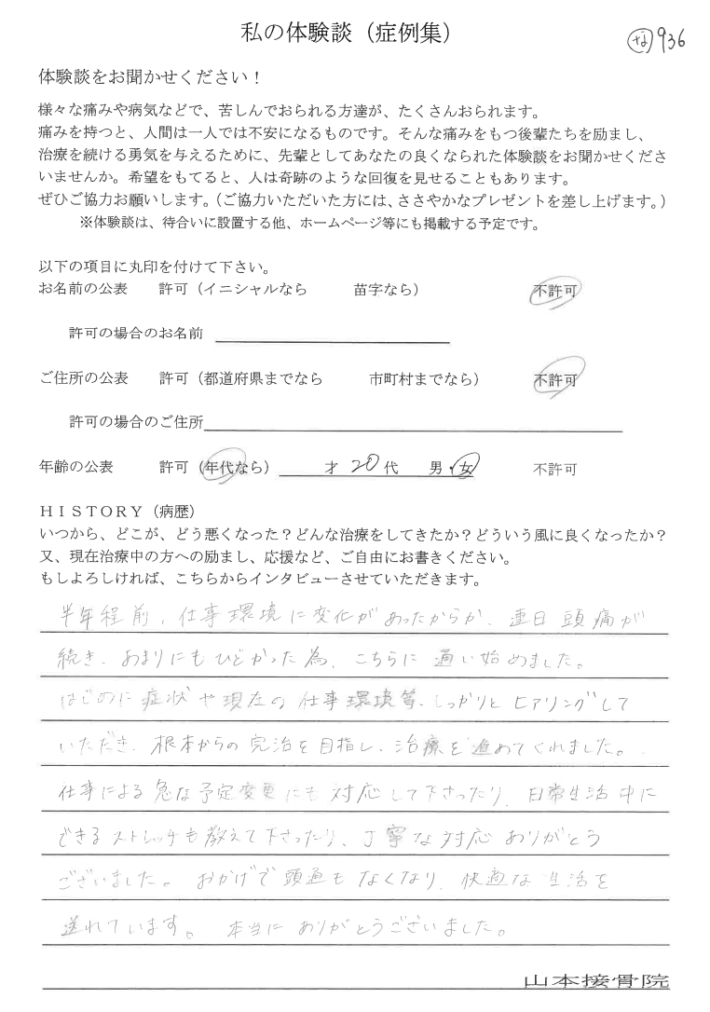 私の体験談（症例集）
な 936
体験談をお聞かせください！
様々な痛みや病気などで、苦しんでおられる方達が、たくさんおられます。
痛みを持つと、人間は一人では不安になるものです。そんな痛みをもつ後輩たちを励まし、
治療を続ける勇気を与えるために、先輩としてあなたの良くなられた体験談をお聞かせくださ
いませんか。希望をもてると、人は奇跡のような回復を見せることもあります。
ぜひご協力お願いします。（ご協力いただいた方には、ささやかなプレゼントを差し上げます。）
※体験談は、待合いに設置する他、ホームページ等にも掲載する予定です。
以下の項目に丸印を付けて下さい。
お名前の公表　許可（イニシャルなら　苗字なら）　不許可
許可の場合のお名前
ご住所の公表　許可（都道府県までなら　市町村までなら）　不許可
許可の場合のご住所
年齢の公表　許可（年代なら）　才 20代　男・女　不許可
ＨＩＳＴＯＲＹ（病歴）
いつから、どこが、どう悪くなった？どんな治療をしてきたか？どういう風に良くなったか？
又、現在治療中の方への励まし、応援など、ご自由にお書きください。
もしよろしければ、こちらからインタビューさせていただきます。
半年程前、仕事環境に変化があったからか、連日頭痛が
続き、あまりにもひどかった為、こちらに通い始めました。
はじめに症状や現在の仕事環境等、しっかりとヒアリングして
いただき、根本からの完治を目指し、治療を進めてくれました。
仕事による急な予定変更にも対応して下さったり、日常生活中に
できるストレッチも教えて下さったり、丁寧な対応ありがとう
ございました。おかげで頭痛もなくなり、快適な生活を
送れています。本当にありがとうございました。
山本接骨院